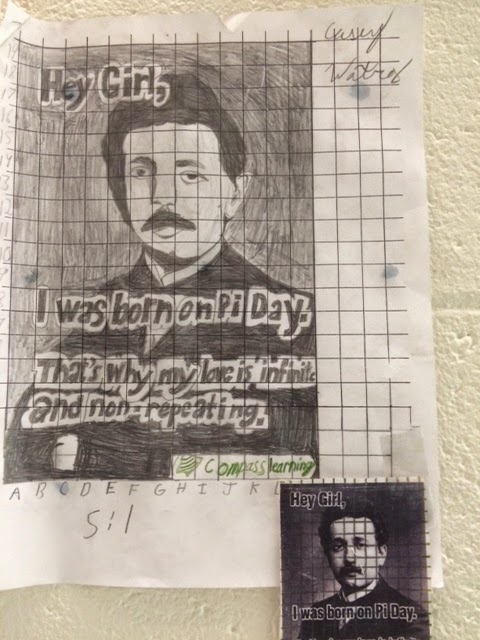 Hey Girl,
I was born on Pi Day.
That's why my love is infinite
and non-repeating.
Compasslearning
A B C D E F G H I J K L
5:1
Hey Girl,
I was born on Pi Day.